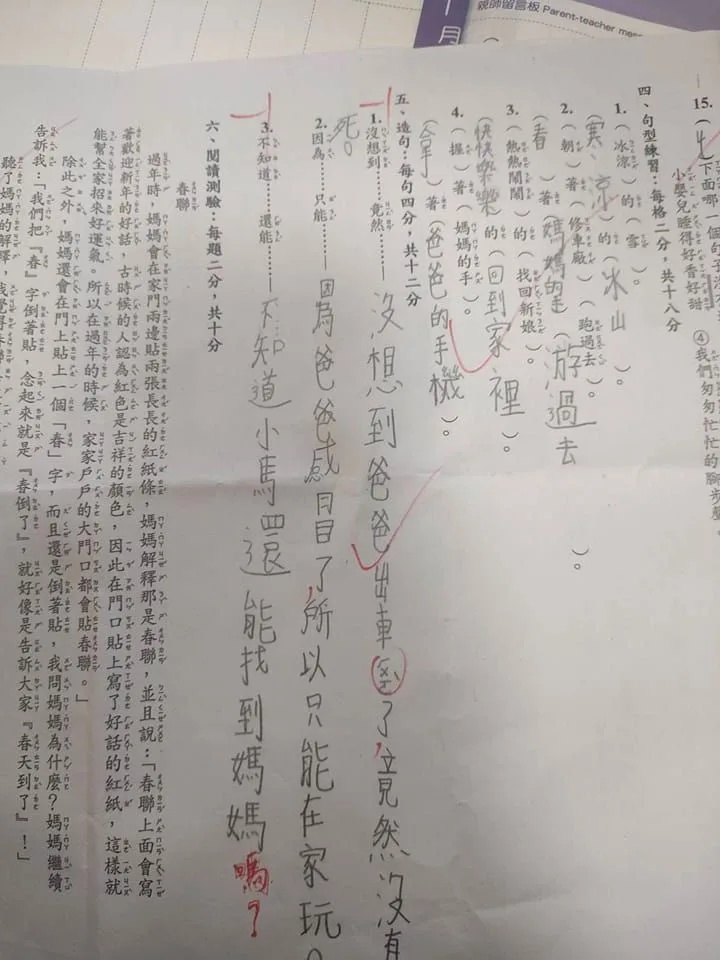 親師留言板 Parent-teacher mes
一月
15.
(4)下面哪一個句子沒
小嬰兒睡得好香好甜
④我們匆匆忙忙的腳步聲。
四、句型練習：每格二分，共十八分
1.(冰涼)的(雪)。
(寒涼)的(冰山)。
2.(朝)著(修車廠)(跑過去)。
(看)著(媽媽的)(游過去)。
3.(熱熱鬧鬧)的(找回新娘)。
(快快樂樂)的(回到家裡)。
4.(握)著(媽媽的手)。
(拿)著(爸爸的手機)。
五、造句：每句四分，共十二分
1.沒想到……竟然……
沒想到爸爸出車禍了，竟然沒有
死。
2.因為……只能……
因為爸爸感冒了，所以只能在家玩。
3.不知道……還能……
不知道小馬還能找到媽媽嗎？
六、閱讀測驗：每題二分，共十分
春聯
過年時，媽媽會在家門兩邊貼兩張長長的紅紙條，媽媽解釋那是春聯，並且說：「春聯上面會寫
著歡迎新年的好話，古時候的人認為紅色是吉祥的顏色，因此在門口貼上寫了好話的紅紙，這樣就
能幫全家招來好運氣。所以在過年的時候，家家戶戶的大門口都會貼春聯。」
除此之外，媽媽還會在門上貼上一個「春」字，而且還是倒著貼，我問媽媽為什麼？媽媽繼續
告訴我：「我們把『春』字倒著貼，念起來就是『春倒了』，就好像是告訴大家『春天到了』！」
聽了媽媽的解釋，我覺得春聯